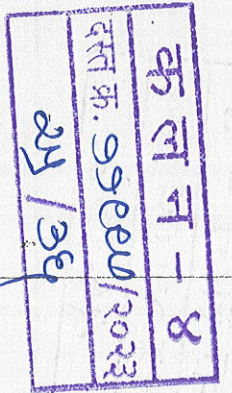 कलन - ४
दस्त क्र. ११९९७/२०२३
२५/३६